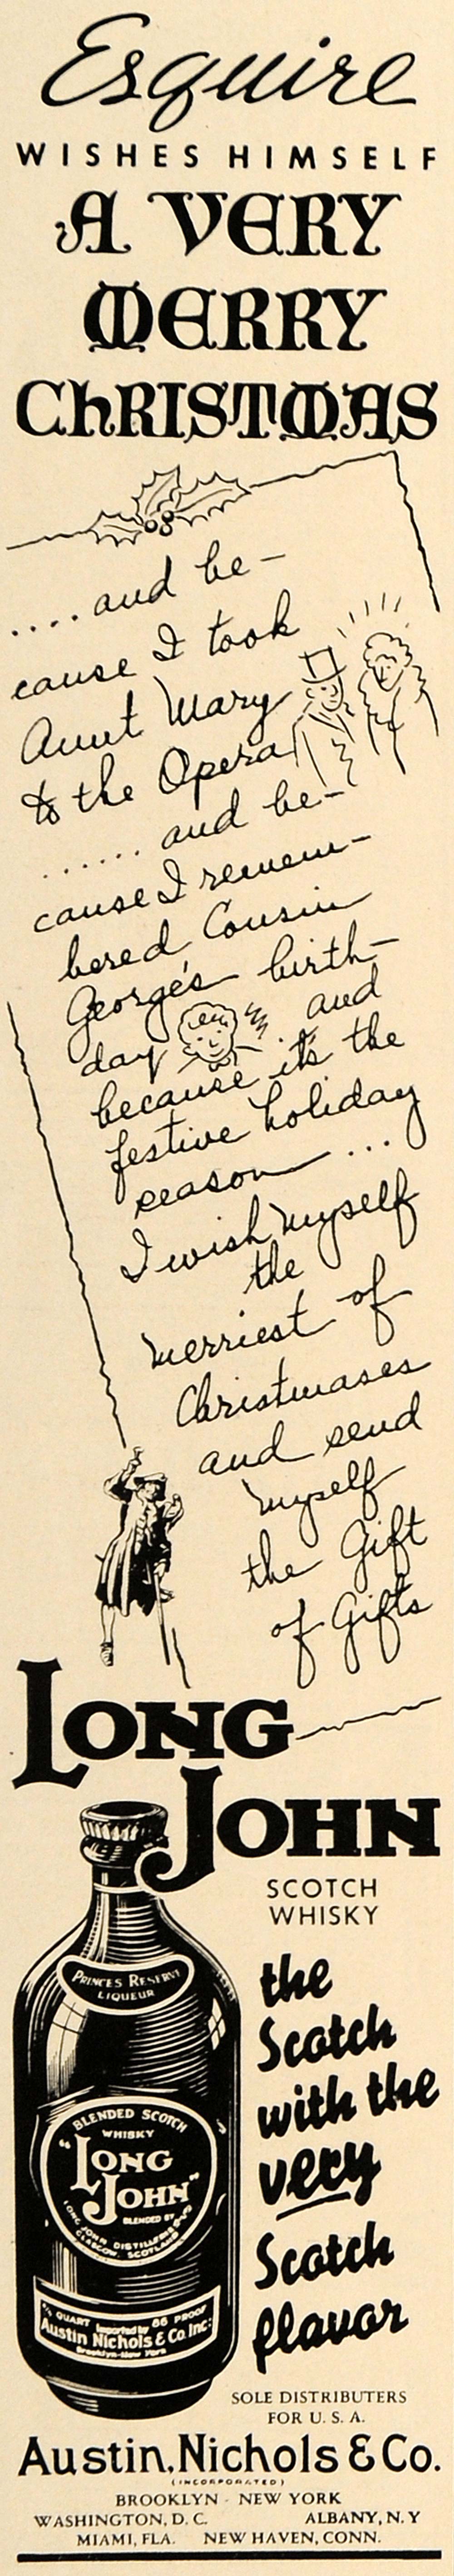 Esquire
WISHES HIMSELF
A VERY
MERRY
CHRISTMAS
.... and be-
cause I took
Aunt Mary
to the Opera
...... and be-
cause I remem-
bered Cousin
George's birth-
day . and
because it's the
festive holiday
season ...
I wish myself
the
merriest of
Christmases
and send
myself
the Gift
of Gifts
LONG
JOHN
SCOTCH
WHISKY
PRINCES RESERVE
LIQUEUR
the
Scotch
with the
very
Scotch
flavor
BLENDED SCOTCH
WHISKY
"LONG
JOHN"
BLENDED BY
LONG JOHN DISTILLERIES
GLASGOW, SCOTLAND
4/5 QUART Imported by 86 PROOF
Austin Nichols & Co. Inc.
Brooklyn-New York
SOLE DISTRIBUTERS
FOR U. S. A.
Austin, Nichols & Co.
(INCORPORATED)
BROOKLYN - NEW YORK
WASHINGTON, D. C. ALBANY, N. Y
MIAMI, FLA. NEW HAVEN, CONN.